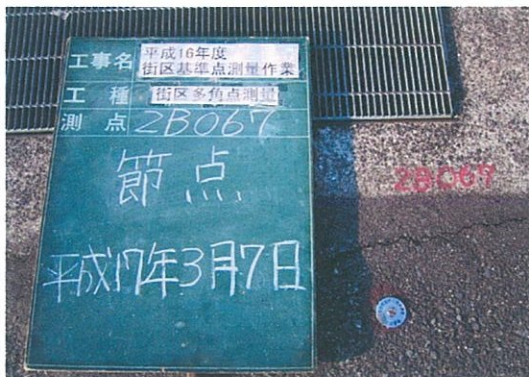 工事名 平成16年度
街区基準点測量作業
工種 街区多角点測量
測点 2B067
節点
平成17年3月7日
2B067